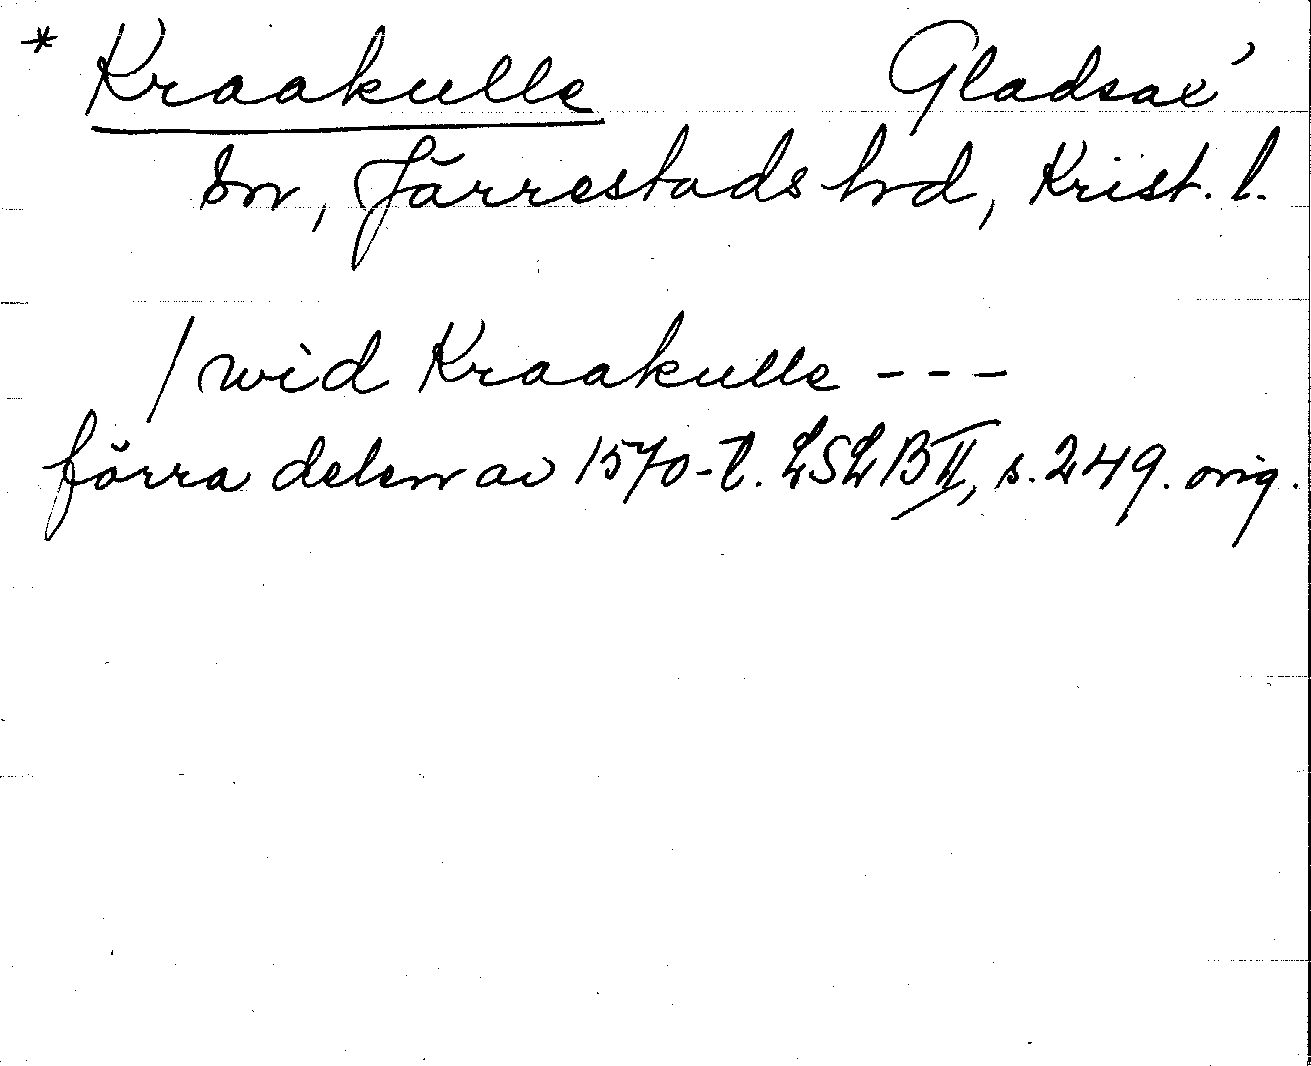 * Kraakulle Gladsax'
sn, Järrestads hd, Krist. l.
/wid Kraakulle ---
förra delen av 1570-t. LSLB II, s. 249. orig.